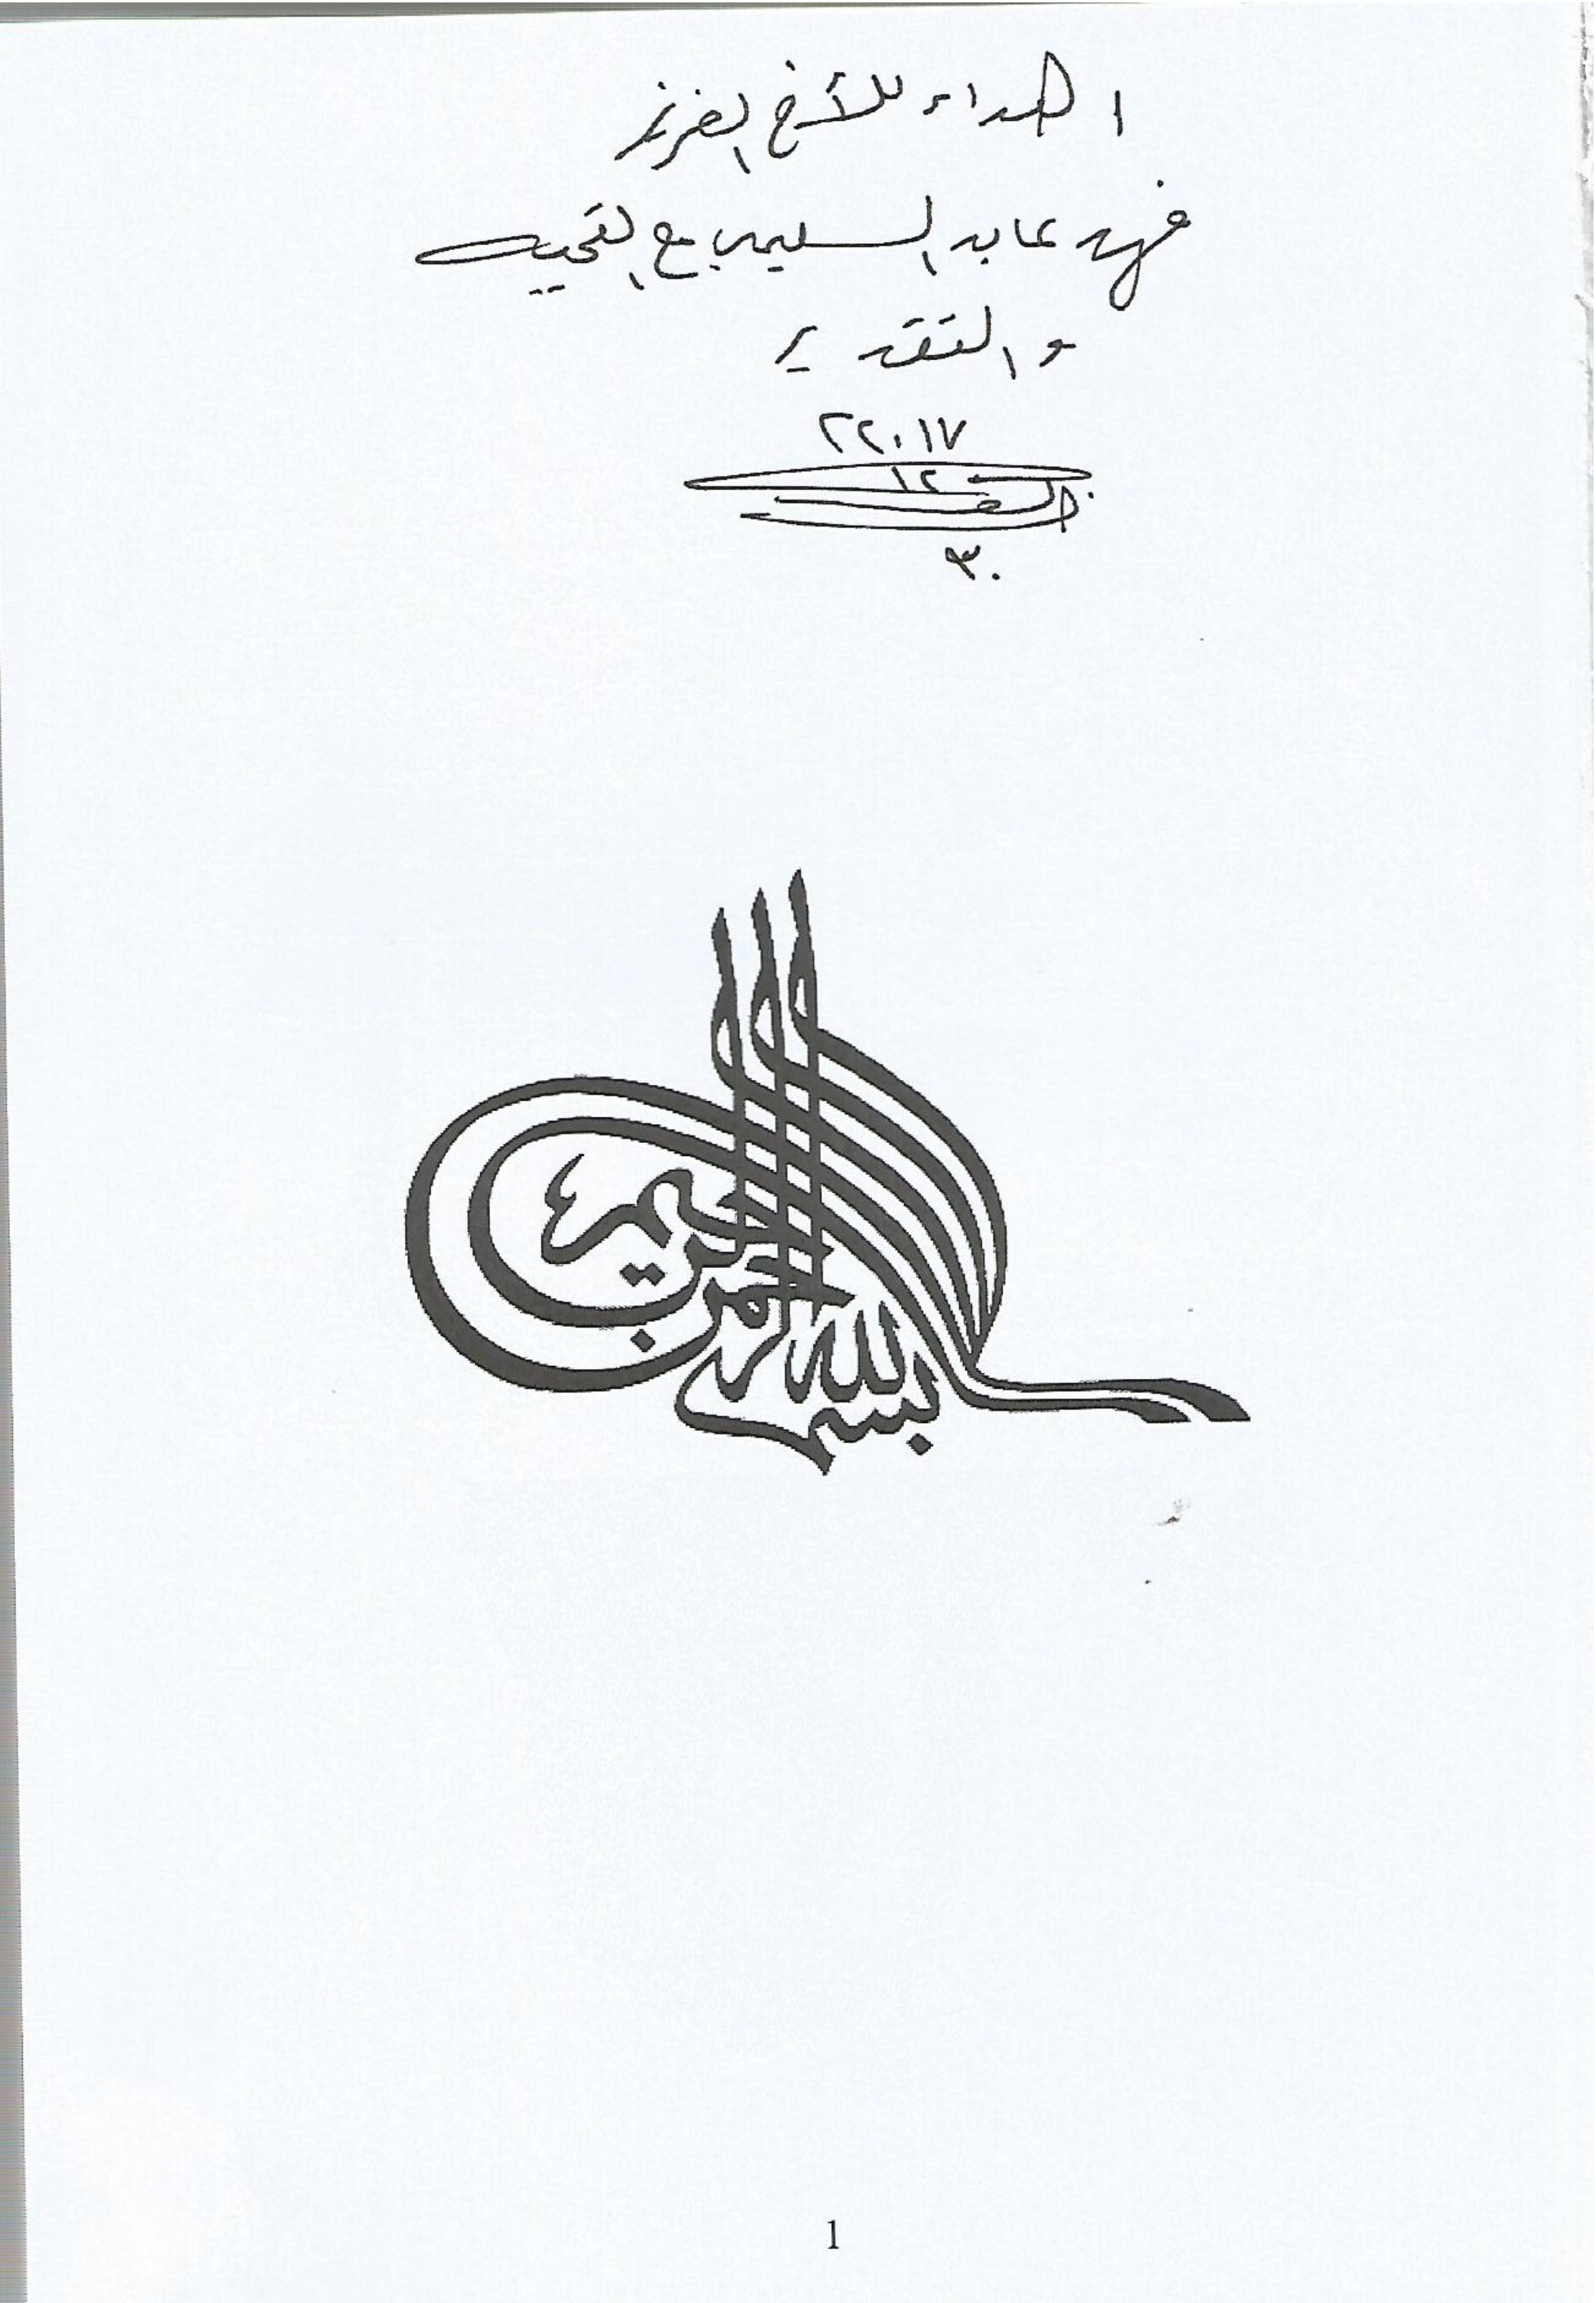 اهداء للأخ العزيز
فهد عابد السليمي مع التحيه
والتقدير
٢٢٠١٧
١٢
٣٠
بسم الله الرحمن الرحيم
1